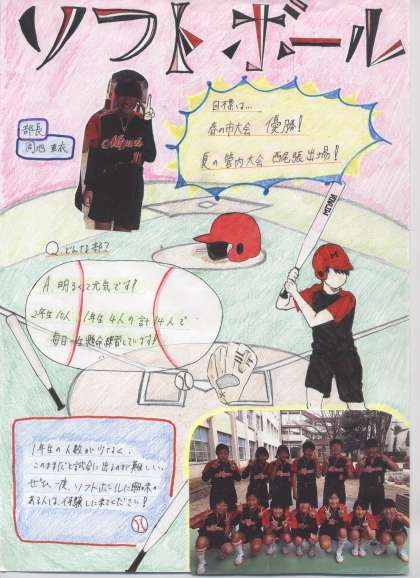 ソフトボール
目標は…
春の市大会 優勝!
夏の管内大会 西尾張出場!
部長
Q. どんな部?
A. 明るくて元気です!
2年生10人、1年生4人の計14人で
毎日一生懸命練習しています!
1年生の人数が少なく、
このままだと試合に出るのが難しい。
ぜひ一度、ソフトボールに興味の
ある人は、体験しに来てください!